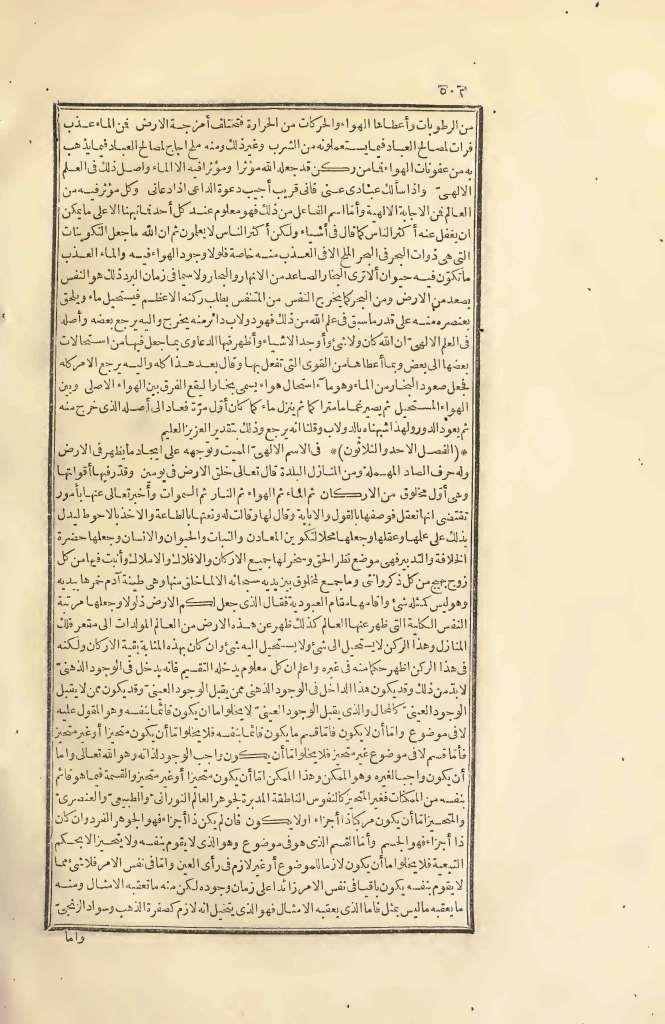 ٥٠٣
من الرطوبات وأعطاها الهواء والحركات من الحرارة فتختلف أمزجة الارض فمن الماء عذب
فرات لمصالح العباد فيما يستعملونه من الشرب وغير ذلك ومنه ملح اجاج لمصالح العباد فيما يذهب
به من عفونات الهواء فما من ركن قد جعله الله مؤثرا ومؤثرا فيه الا الماء واصل ذلك فى العلم
الالهىّ واذا سألك عبادى عنى فانى قريب أجيب دعوة الداعى اذا دعانى وكل مؤثر فيه من
العالم فمن الاجابة الالهية وأمّا اسم الفاعل من ذلك فهو معلوم عند كل أحد فما نبهنا الا على ما يمكن
ان يغفل عنه أكثر الناس كما قال فى أشياء ولكن أكثر الناس لا يعلمون ثم ان الله ما جعل التكوينات
التى هى ذوات البحر فى البحر الملح الا فى العذب منه خاصة فلولا وجود الهواء فيه والماء العذب
ما تكوّن فيه حيوان ألا ترى البخار الصاعد من الانهار والبحار ولا سيما فى زمان البرد ذلك هو النفس
يصعد من الارض ومن البحر كما يخرج النفس من المتنفس يطلب ركنه الاعظم فيستحيل ماء ويلحق
بعنصره منه على قدر ما سبق فى علم الله من ذلك فهو دولاب دائر منه يخرج واليه يرجع بعضه وأصله
فى العلم الالهىّ ان الله كان ولا شئ وأوجد الاشياء وأظهر فيها الدعاوى بما جعل فيها من استحالات
بعضها الى بعض وبما أعطاها من القوى التى تفعل بها وقال بعد هذا كله واليه يرجع الامر كله
فجعل صعود البخار من الماء وهو ماء استحال هواء يسمى بخارا ليقع الفرق بين الهواء الاصلى وبين
الهواء المستحيل ثم يصير غماما متراكما ثم ينزل ماء كما كان أوّل مرّة فعاد الى أصله الذى خرج منه
ثم يعود الدور ولهذا شبهناه بالدولاب وقلنا انه يرجع وذلك بتقدير العزيز العليم
*(الفصل الاحد والثلاثون)* فى الاسم الالهىّ المميت وتوجهه على ايجاد ما يظهر فى الارض
وله حرف الصاد المهملة ومن المنازل البلدة قال تعالى خلق الارض فى يومين وقدّر فيها أقواتها
وهى أوّل مخلوق من الاركان ثم الماء ثم الهواء ثم النار ثم السموات وأخبر تعالى عنها بأمور
تقتضى انها تعقل فوصفها بالقول والاباية وقال لها وقالت له ونعتها بالطاعة والاخذ بالاحوط ليدل
بذلك على علمها وعقلها وجعلها محلا لتكوين المعادن والنبات والحيوان والانسان وجعلها حضرة
الخلافة والتدبير فهى موضع نظر الحق وسخر لها جميع الاركان والافلاك والاملاك وأنبت فيها من كل
زوج بهيج من كل ذكر وانثى وما جمع لمخلوق بين يديه سبحانه الا لما خلق منها وهى طينة آدم خمرها بيديه
وهو ليس كمثله شئ واقامها مقام العبودية فقال الذى جعل لكم الارض ذلولا وجعلها مرتبة
النفس الكلية التى ظهر عنها العالم كذلك ظهر عن هذه الارض من العالم المولدات الى مقعر فلك
المنازل وهذا الركن لا يستحيل الى شئ ولا يستحيل اليه شئ وان كان بهذه المثابة بقية الاركان ولكنه
فى هذا الركن اظهر حكما منه فى غيره واعلم ان كل معلوم يدخله التقسيم فانه يدخل فى الوجود الذهنىّ
لا بدّ من ذلك وقد يكون هذا الداخل فى الوجود الذهنى ممن يقبل الوجود العينىّ وقد يكون ممن لا يقبل
الوجود العينىّ كالمحال والذى يقبل الوجود العينىّ لا يخلو اما ان يكون قائما بنفسه وهو المقول عليه
لا فى موضوع واما أن لا يكون فاما قسم ما يكون قائما بنفسه فلا يخلو اما أن يكون متحيزا أو غير متحيز
فأمّا قسم لا فى موضوع غير متحيز فلا يخلو اما أن يكون واجب الوجود لذاته وهو الله تعالى واما
أن يكون واجبا لغيره وهو الممكن وهذا الممكن امّا أن يكون متحيزا أو غير متحيز والقسمة فيما هو قائم
بنفسه من الممكنات فغير المتحيز كالنفوس الناطقة المدبرة لجوهر العالم النورانىّ والطبيعىّ والعنصرىّ
والمتحيز امّا أن يكون مركبا ذا أجزاء اولا يكون فان لم يكن ذا أجزاء فهو الجوهر الفرد وان كان
ذا أجزاء فهو الجسم وأمّا القسم الذى هو فى موضوع وهو الذى لا يقوم بنفسه ولا يتحيز الا بحكم
التبعية فلا يخلو اما أن يكون لازما للموضوع أو غير لازم فى رأى العين وامّا فى نفس الامر فلا شئ مما
لا يقوم بنفسه يكون باقيا فى نفس الامر زائدا على زمان وجوده لكن منه ما تعقبه الامثال ومنه
ما يعقبه ما ليس بمثل فأما الذى يعقبه الامثال فهو الذى يتخيل انه لازم كصفرة الذهب وسواد الزنجىّ
واما